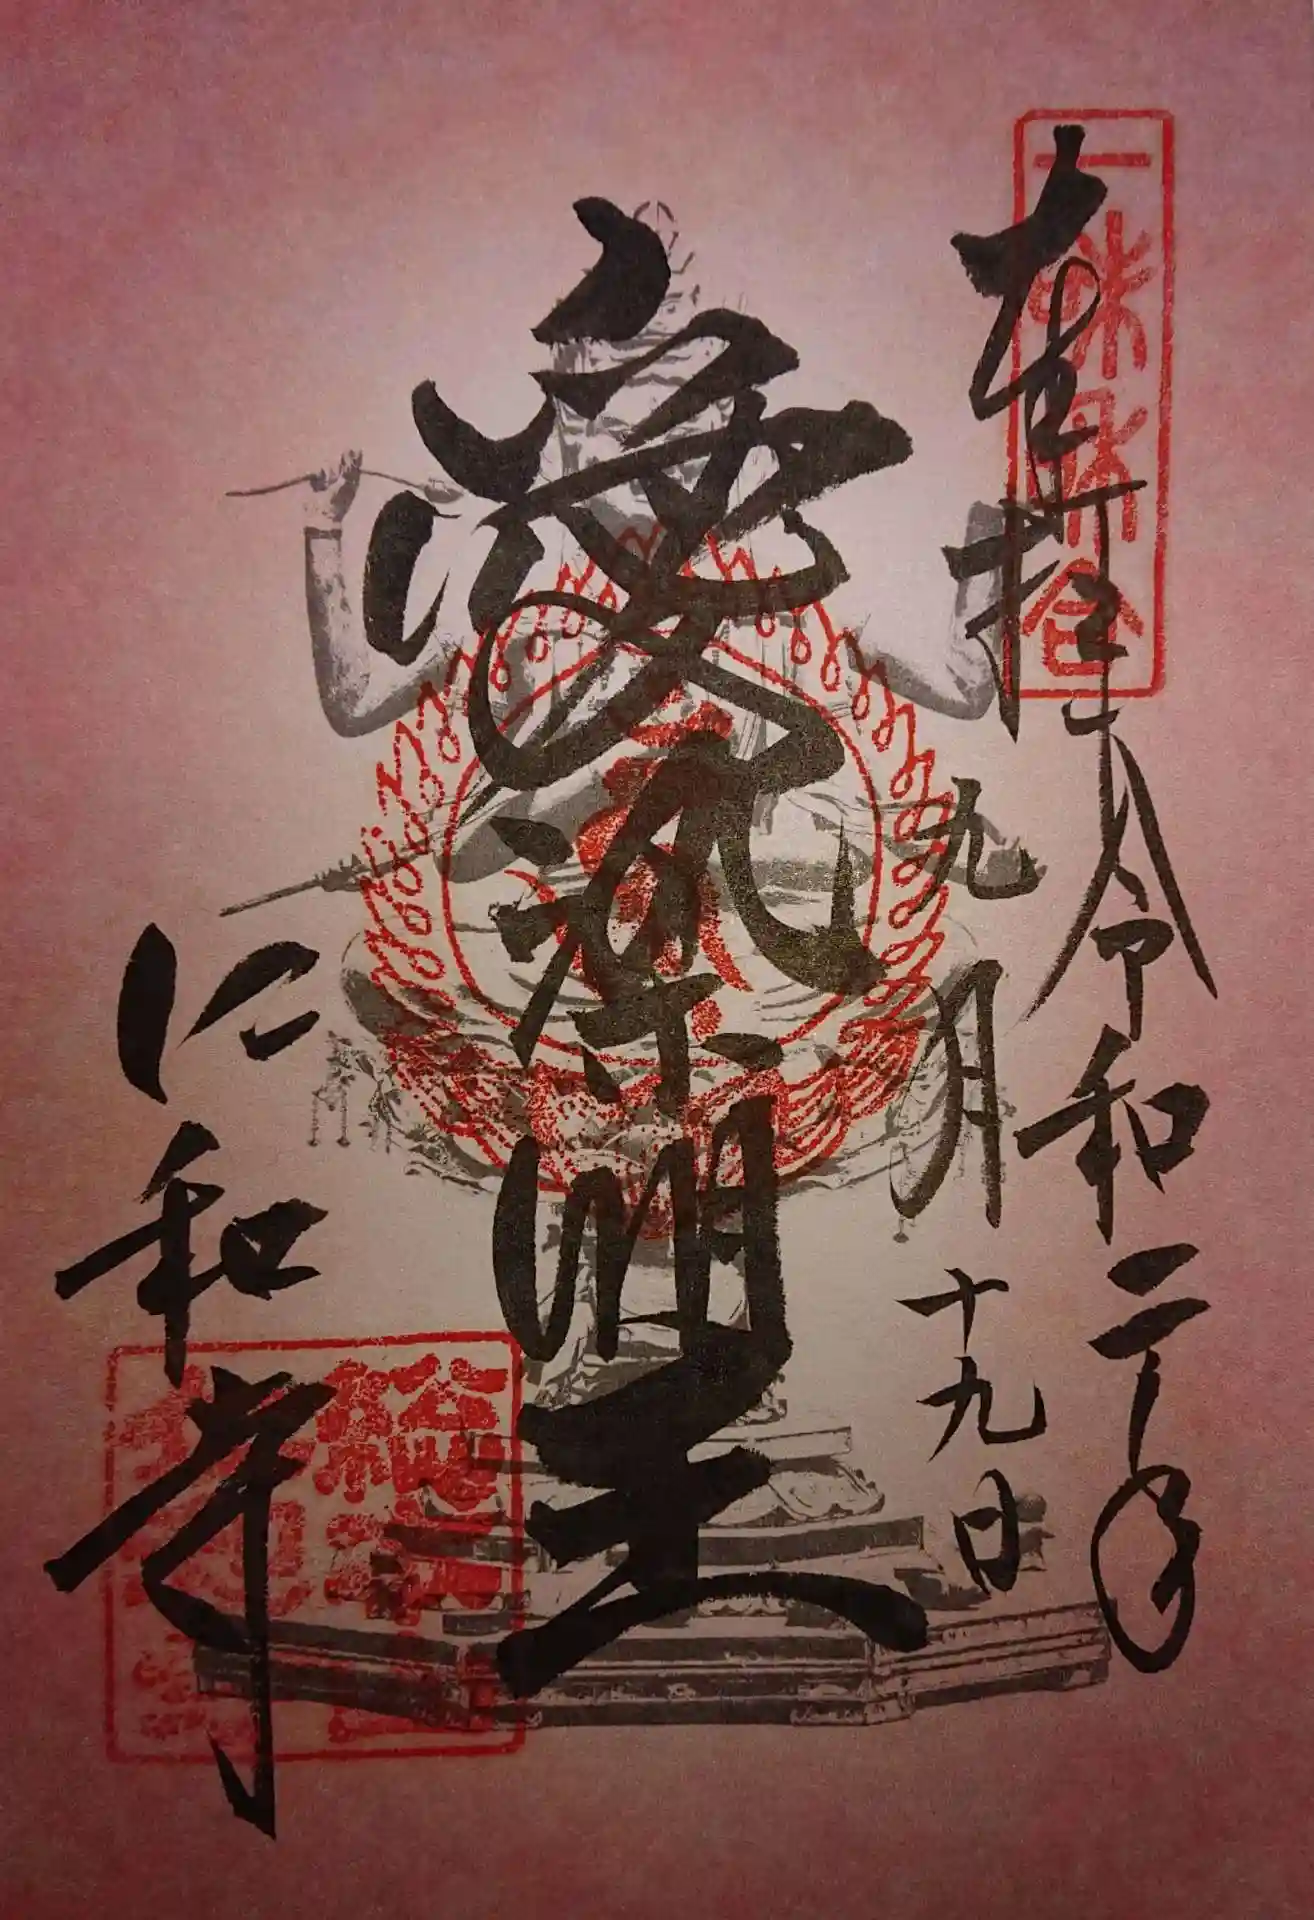 一味和合
奉拝
令和二年
九月十九日
愛染明王
仁和寺